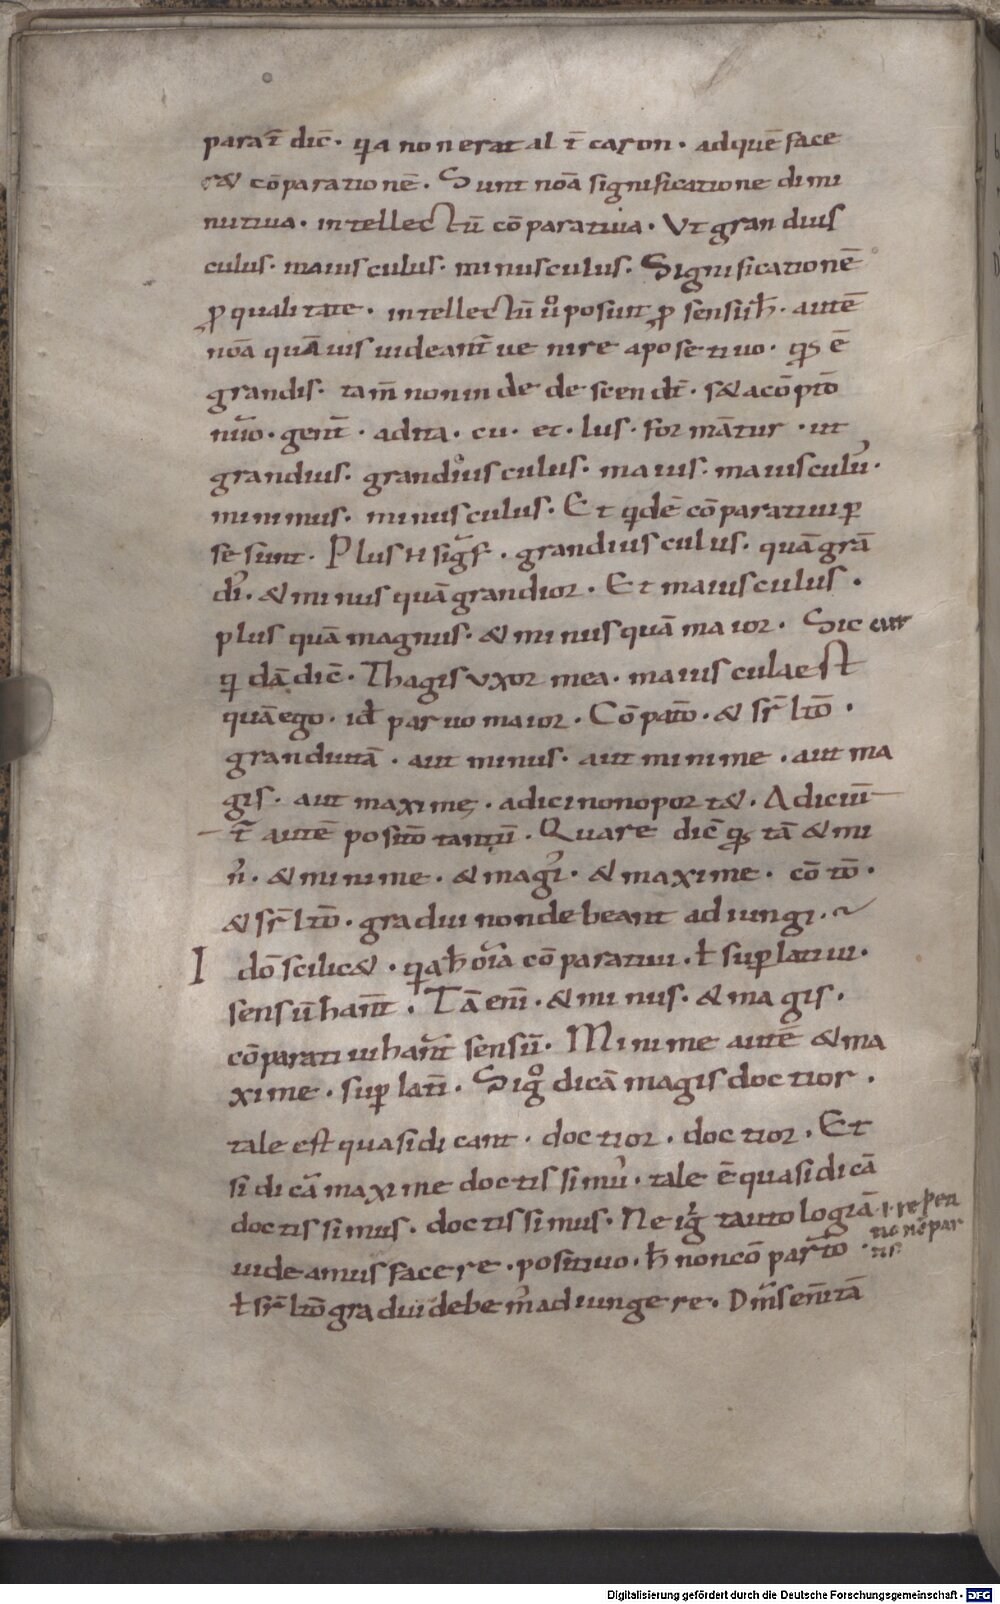 parat̄ dic̄. q̨a non erat al t̄ caron. ad quē face
r& cōparationē. Sunt noā significatione dimi
nutiua. intellectū cōparatiua. Vt grandius
culus. maiusculus. minusculus. Significationē
ꝓ qualitate. intellectū ů posunt ꝓ sensu ħ. autē
noā quāuis uideant̄ uenire a posetiuo. qđ ē
grandis. tam̄ non inde descendt̄. s& a cōptō
nūo. gent̄. adita. cu. et. lus. formātur. ut
grandius. grandiusculus. maius. maiusculu᾽.
minimus. minusculus. Et q̨dē cōparatiui ꝑ
se sunt. Plus H sigf̄. grandiusculus. quā grā
di᾽. & minus quā grandior. Et maiusculus.
plus quā magnus. & minus quā maior. Sic
q̨dā dic̄. Thagis uxor mea. maiuscula est
quā ego. id̄ paruo maior. Cōpatō. & sr̄ltō.
graduu tā. aut minus. aut minime. aut ma
gis. aut maxime. adici non oport&. Adiciun
t̄ autē positō tantū. Quare dic̄ qđ tā & mi
n᾽. & minime. & magi᾽. & maxime. cō tō.
& sr̄ltō. gradui non debeant adiungi.
I dō scilic& . q̨a ħ oīa cōparatiui. ł suꝑlatiui.
sensū hant̄. Tā enī. & minus. & magis.
cōparatiui hant̄ sensū. Minime autē & ma
xime. suꝑlati. Si g̊ dicā magis doctior.
tale est quasi dicant. doctior. doctior. Et
si dicā maxime doctissimu᾽. tale ē quasi dicā
doctissimus. doctissimus. Ne ig̊ tautologiā .i. repeti
tionē par
tis
uideamus facere. positiuo. ħ non cō partō
ł sr̄ltō gradui debem᾽ adiungere. Dmseni tā
Digitalisierung gefördert durch die Deutsche Forschungsgemeinschaft - DFG